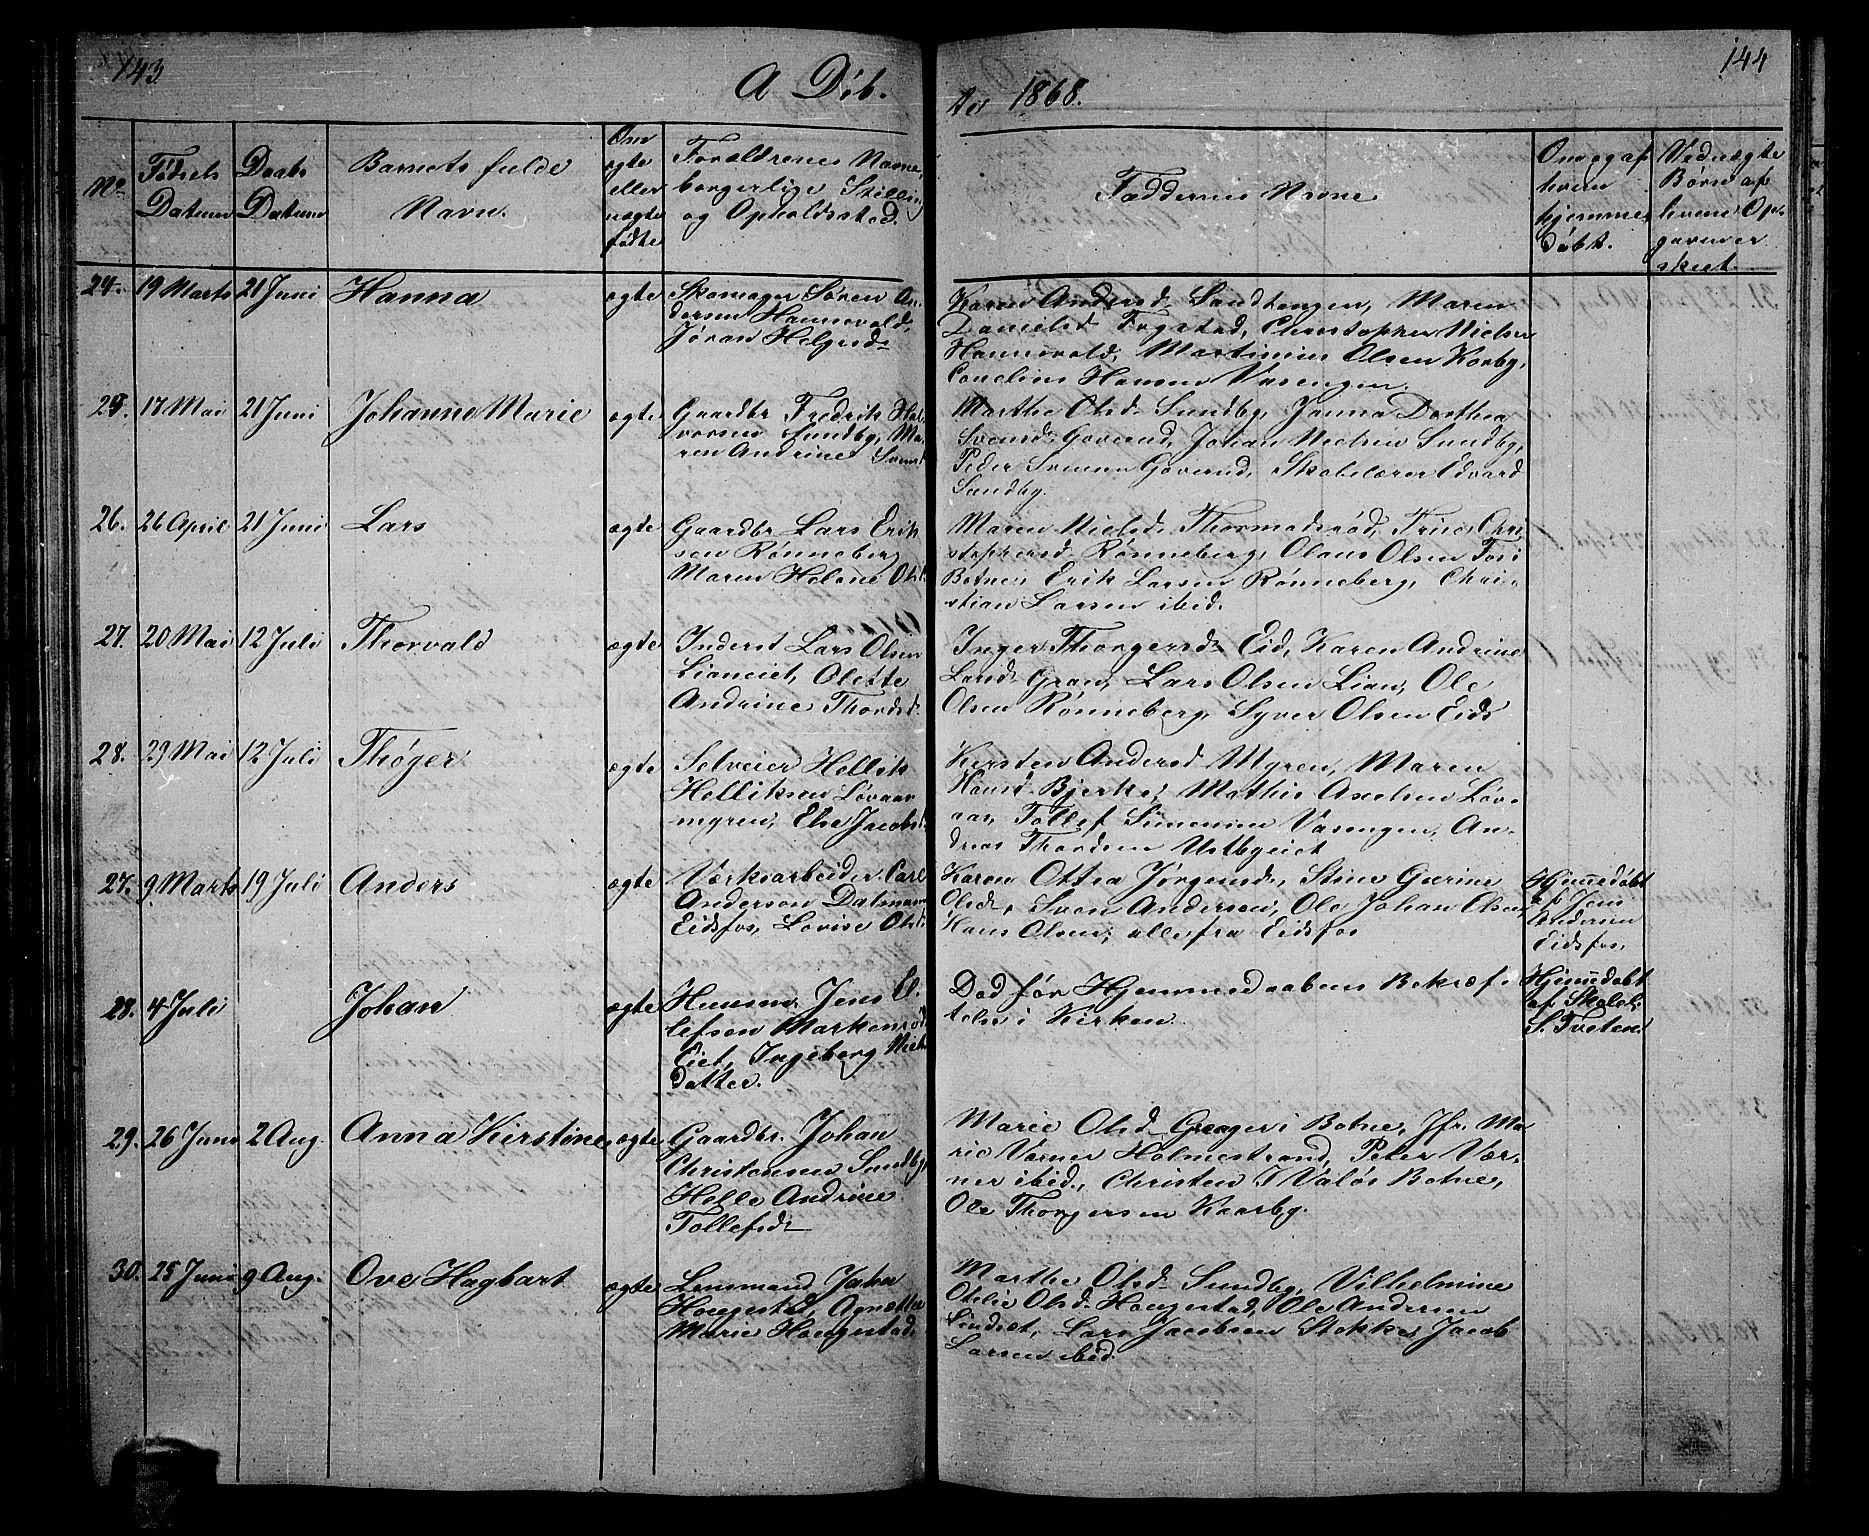 143
A Døb.
No
Fødsels Datum
Daabs Datum
Barnets fulde Navn.
Om ægte eller uægte fødte
Forældrenes Navne, borgerlige Stilling og Opholdssted.
144
Ao 1868.
Faddernes Navne
Om og af hvem hjemme døbt.
Ved uægte Børn af hvem Opgaven er skeet.
24. 19 Marts 21 Juni Hanna ægte
Skomager Søren An-
dersen Hannevold,
Jøran Helgesd.
Karen Andersd. Sandtangen, Maren
Danielsd. Fogstad, Christopher Nielsen
Hannevold, Martinius Olsen Korby,
Cornelius Hansen Vasengen.
25. 17 Mai 21 Juni Johanne Marie ægte
Gaardbr Fredrik Hal-
vorsen Sundby, Ma-
ren Andrine Svensd.
Marthe Olsd. Sundby, Janna Dorthea
Svensd. Goverud, Johan Nielsen Sundby,
Peder Svensen Goverud, Skolelærer Edvard
Sundby.
26. 26 April 21 Juni Lars ægte
Gaardbr Lars Erik-
sen Rønneberg
Maren Helene Olsd.
Maren Nielsd. Thormodsrød, Trine Chri-
stophersd. Rønneberg, Olaus Olsen Fos i
Botne, Erik Larsen Rønneberg, Chri-
stian Larsen ibid.
27. 20 Mai 12 Juli Thorvald ægte
Inderst Lars Olsen
Lianeiet, Olette
Andrine Thordsd.
Inger Thorgersd. Eid, Karen Andrine
Larsd. Gran, Lars Olsen Lian, Ole
Olsen Rønneberg, Syver Olsen Eids
28. 23 Mai 12 Juli Thøger ægte
Selveier Hellik
Helliksen Løvaas
myren, Else Jacobsd.
Kirsten Andersd. Myren, Maren
Hansd. Bjerke, Mathis Axelsen Løv-
aas, Tollef Simensen Vasengen, An-
dreas Thordsen Ustbyeiet
27. 9 Marts 19 Juli Anders ægte
Værksarbeider Carl
Anderson Dalman
Eidsfos, Lovise Olsd.
Karen Ottea Jørgensd., Stine Gurine
Olsd., Sven Andersen, Ole Johan Olsen,
Hans Olsen, alle fra Eidsfos
Hjemmedøbt
af Jens
Andersen
Eidsfos.
28. 4 Juli Johan ægte
Husmn. Jens El-
lefsen Markenrød
Eiet, Ingeborg Niels
datter.
Død før Hjemmedaabens Bekræf-
telse i Kirken.
Hjemmedøbt
af Skolel.
S. Tveten
29. 26 Juni 2 Aug. Anna Kirstine ægte
Gaardbr. Johan
Christensen Sundby,
Helle Andrine
Tollefsd.
Marie Olsd. Greager i Botne, Jfr. Ma-
rie Værner Holmestrand, Peter Vær-
ner ibid., Christen J. Valøs Botne,
Ole Thorgersen Kaarby.
30. 25 Juni 9 Aug. Ove Hagbart ægte
Lensmand Jahn
Hougestad, Agnette
Marie Hougestad.
Marthe Olsd. Sundby, Vilhelmine
Otelie Olsd. Hougestad, Ole Andersen
Lindset, Lars Jacobsen Stokke, Jacob
Larsen ibid.